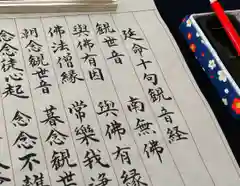 延命十句観音経
観世音　南無佛
與佛有因　與佛有縁
佛法僧縁　常樂我浄
朝念観世音　暮念観世
念念従心起　念念不